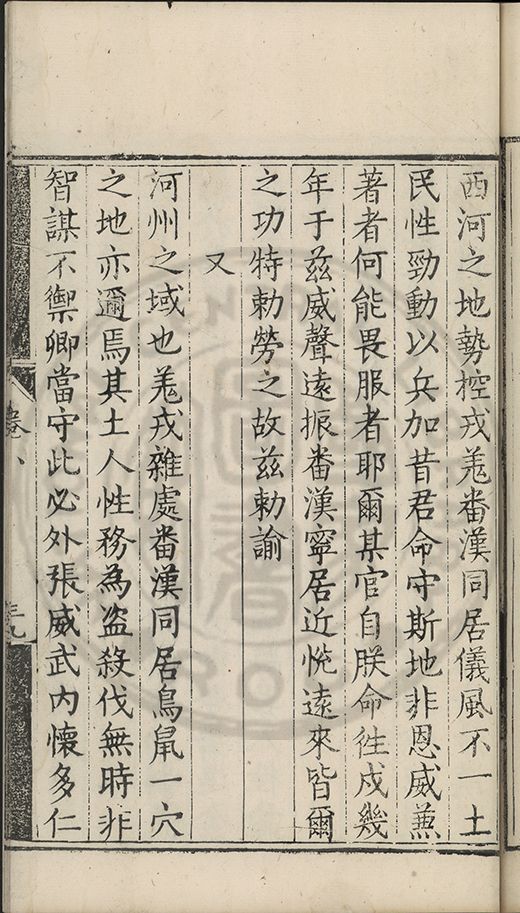 西河之地勢控戎羗番漢同居儀風不一土
民性勁動以兵加昔君命守斯地非恩威兼
著者何能畏服者耶爾某官自朕命徃戍幾
年于兹威聲遠振番漢寧居近恱遠來皆爾
之功特勅勞之故兹勅諭
又
河州之域也羗戎雜處番漢同居鳥鼠一穴
之地亦邇焉其土人性務為盗殺伐無時非
智謀不禦卿當守此必外張威武内懷多仁
卷八